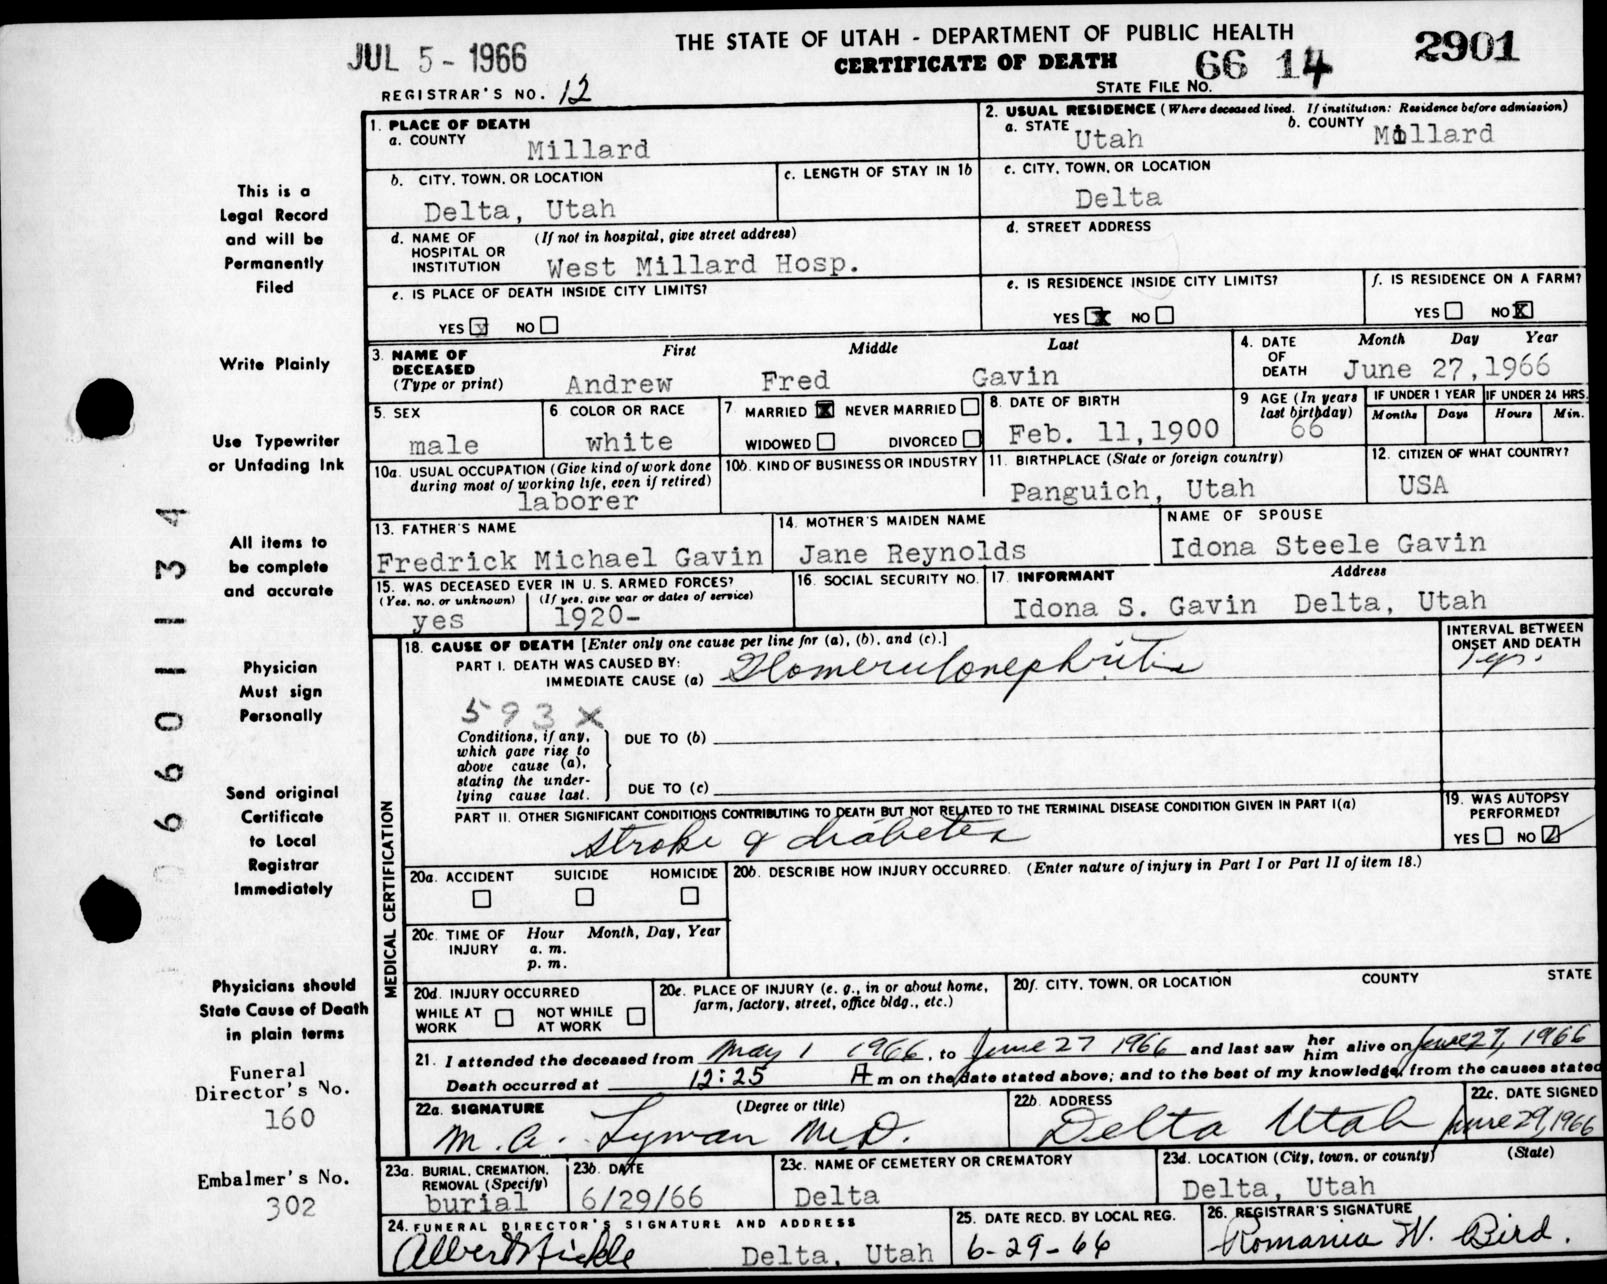 JUL 5 - 1966
THE STATE OF UTAH - DEPARTMENT OF PUBLIC HEALTH
CERTIFICATE OF DEATH
66 14
2901
STATE FILE NO.
REGISTRAR'S NO. 12
1. PLACE OF DEATH
a. COUNTY Millard
2. USUAL RESIDENCE (Where deceased lived. If institution: Residence before admission)
a. STATE Utah b. COUNTY Millard
b. CITY, TOWN, OR LOCATION
Delta, Utah
c. LENGTH OF STAY IN 1b
c. CITY, TOWN, OR LOCATION
Delta
d. NAME OF HOSPITAL OR INSTITUTION (If not in hospital, give street address)
West Millard Hosp.
d. STREET ADDRESS
e. IS PLACE OF DEATH INSIDE CITY LIMITS?
YES y NO
e. IS RESIDENCE INSIDE CITY LIMITS?
YES X NO
f. IS RESIDENCE ON A FARM?
YES NO X
3. NAME OF DECEASED (Type or print)
First Middle Last
Andrew Fred Gavin
4. DATE OF DEATH
Month Day Year
June 27,1966
5. SEX
male
6 COLOR OR RACE
white
7 MARRIED X NEVER MARRIED
WIDOWED DIVORCED
8. DATE OF BIRTH
Feb. 11,1900
9 AGE (In years last birthday)
66
IF UNDER 1 YEAR
Months Days
IF UNDER 24 HRS.
Hours Min.
10a. USUAL OCCUPATION (Give kind of work done during most of working life, even if retired)
laborer
10b. KIND OF BUSINESS OR INDUSTRY
11. BIRTHPLACE (State or foreign country)
Panguich, Utah
12. CITIZEN OF WHAT COUNTRY?
USA
13. FATHER'S NAME
Fredrick Michael Gavin
14. MOTHER'S MAIDEN NAME
Jane Reynolds
NAME OF SPOUSE
Idona Steele Gavin
15. WAS DECEASED EVER IN U. S. ARMED FORCES?
(Yes, no, or unknown) (If yes, give war or dates of service)
yes 1920-
16. SOCIAL SECURITY NO.
17. INFORMANT Address
Idona S. Gavin Delta, Utah
18. CAUSE OF DEATH [Enter only one cause per line for (a), (b), and (c).]
INTERVAL BETWEEN ONSET AND DEATH
PART I. DEATH WAS CAUSED BY:
IMMEDIATE CAUSE (a) Glomerulonephritis
593 X
Conditions, if any, which gave rise to above cause (a), stating the underlying cause last.
DUE TO (b)
DUE TO (c)
PART II. OTHER SIGNIFICANT CONDITIONS CONTRIBUTING TO DEATH BUT NOT RELATED TO THE TERMINAL DISEASE CONDITION GIVEN IN PART I(a)
Stroke & diabetes
19. WAS AUTOPSY PERFORMED?
YES NO
MEDICAL CERTIFICATION
20a. ACCIDENT SUICIDE HOMICIDE
20b. DESCRIBE HOW INJURY OCCURRED. (Enter nature of injury in Part I or Part II of item 18.)
20c. TIME OF INJURY Hour Month, Day, Year
a. m.
p. m.
20d. INJURY OCCURRED
WHILE AT WORK NOT WHILE AT WORK
20e. PLACE OF INJURY (e. g., in or about home, farm, factory, street, office bldg., etc.)
20f. CITY, TOWN, OR LOCATION COUNTY STATE
21. I attended the deceased from May 1 1966, to June 27 1966 and last saw her him alive on June 27, 1966
Death occurred at 12:25 A m on the date stated above; and to the best of my knowledge, from the causes stated
22a. SIGNATURE (Degree or title)
M. A. Lyman M.D.
22b. ADDRESS
Delta Utah
22c. DATE SIGNED
June 29, 1966
23a. BURIAL, CREMATION, REMOVAL (Specify)
burial
23b. DATE
6/29/66
23c. NAME OF CEMETERY OR CREMATORY
Delta
23d. LOCATION (City, town, or county) (State)
Delta, Utah
24. FUNERAL DIRECTOR'S SIGNATURE AND ADDRESS
Albert Nickle Delta, Utah
25. DATE RECD. BY LOCAL REG.
6-29-66
26. REGISTRAR'S SIGNATURE
Romania W. Bird.
This is a
Legal Record
and will be
Permanently
Filed
Write Plainly
Use Typewriter
or Unfading Ink
All items to
be complete
and accurate
Physician
Must sign
Personally
Send original
Certificate
to Local
Registrar
Immediately
Physicians should
State Cause of Death
in plain terms
Funeral
Director's No.
160
Embalmer's No.
302
06601134